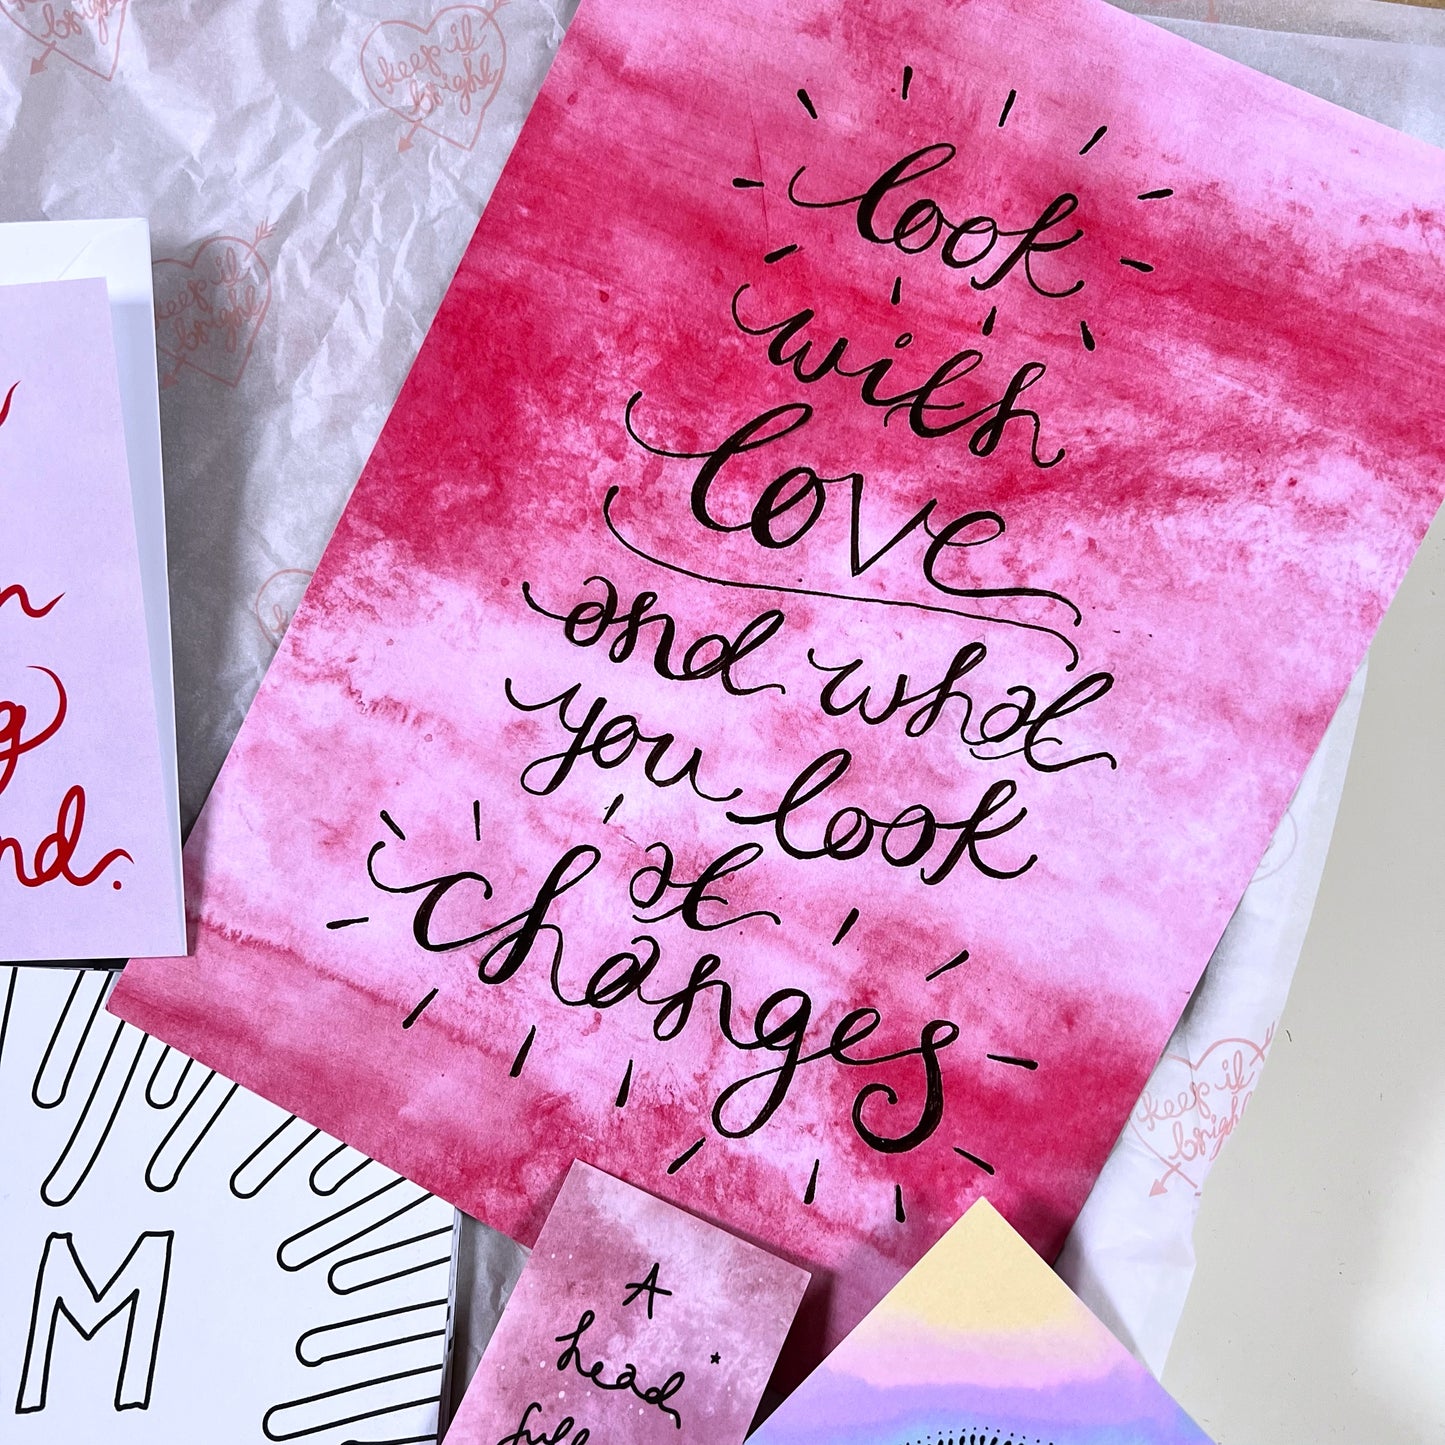 keep it
bright
keep it
bright
look
with
love
and what
you look
at
changes
nd.
M
A
head
full
keep it
bright